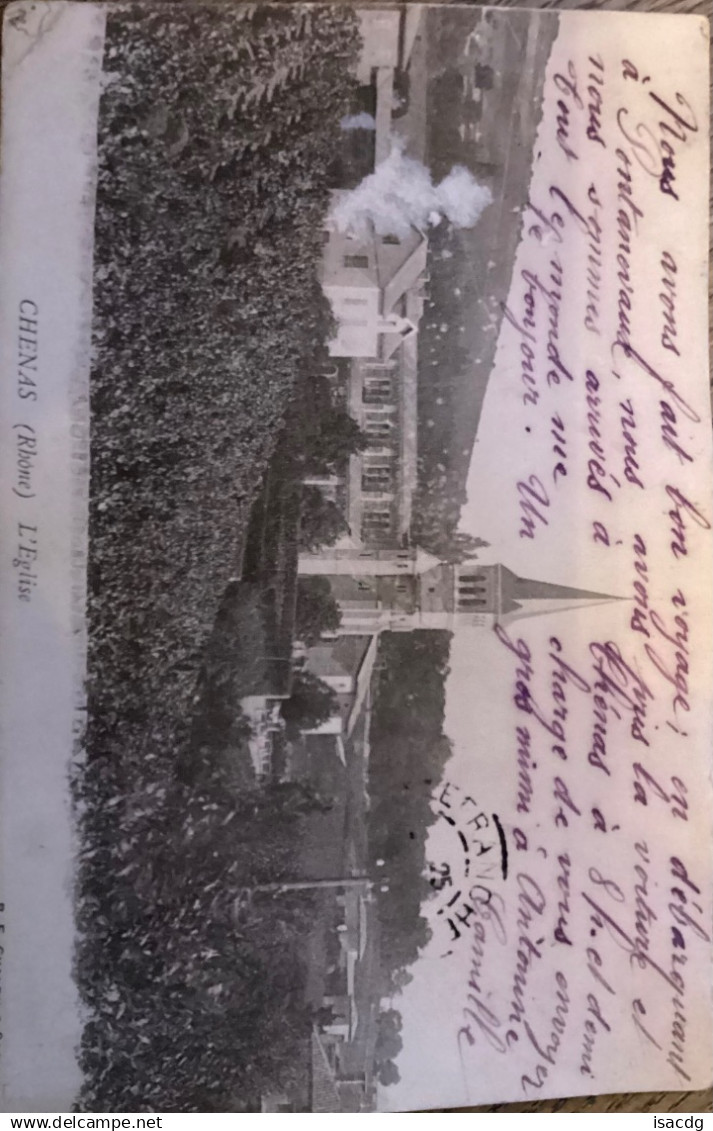 Nous avons fait bon voyage; en débarquant
à Pontanevaux, nous avons pris la voiture et
nous sommes arrivés à Chénas à 8 h. et demi
Tout le monde me charge de vous envoyer
le bonjour. Un gros mimi à Antonine
Camille
ETRANGHE
25
CHENAS (Rhône) L'Eglise
isacdg